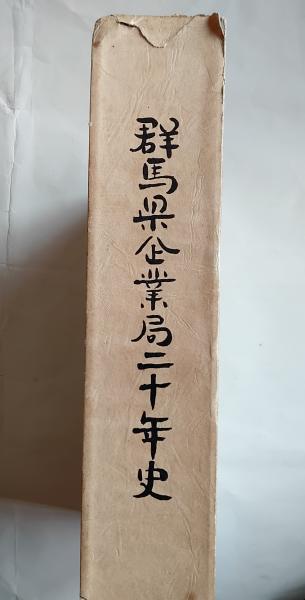 群馬県企業局二十年史